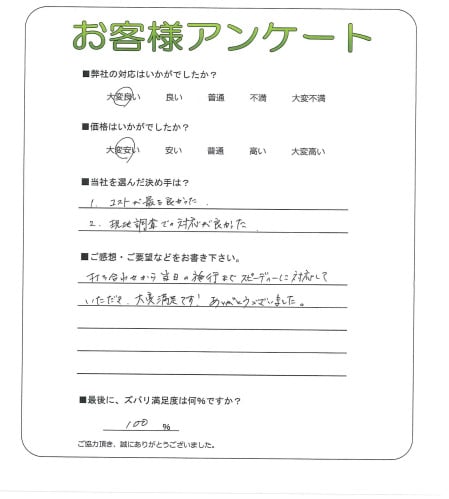 お客様アンケート
■弊社の対応はいかがでしたか？
大変良い 良い 普通 不満 大変不満
■価格はいかがでしたか？
大変安い 安い 普通 高い 大変高い
■当社を選んだ決め手は？
1. コストが最も良かった.
2. 現地調査での対応が良かった.
■ご感想・ご要望などをお書き下さい。
打ち合わせから当日の施行までスピーディーに対応して
いただき、大変満足です！ありがとうございました。
■最後に、ズバリ満足度は何％ですか？
100 ％
ご協力頂き、誠にありがとうございました。